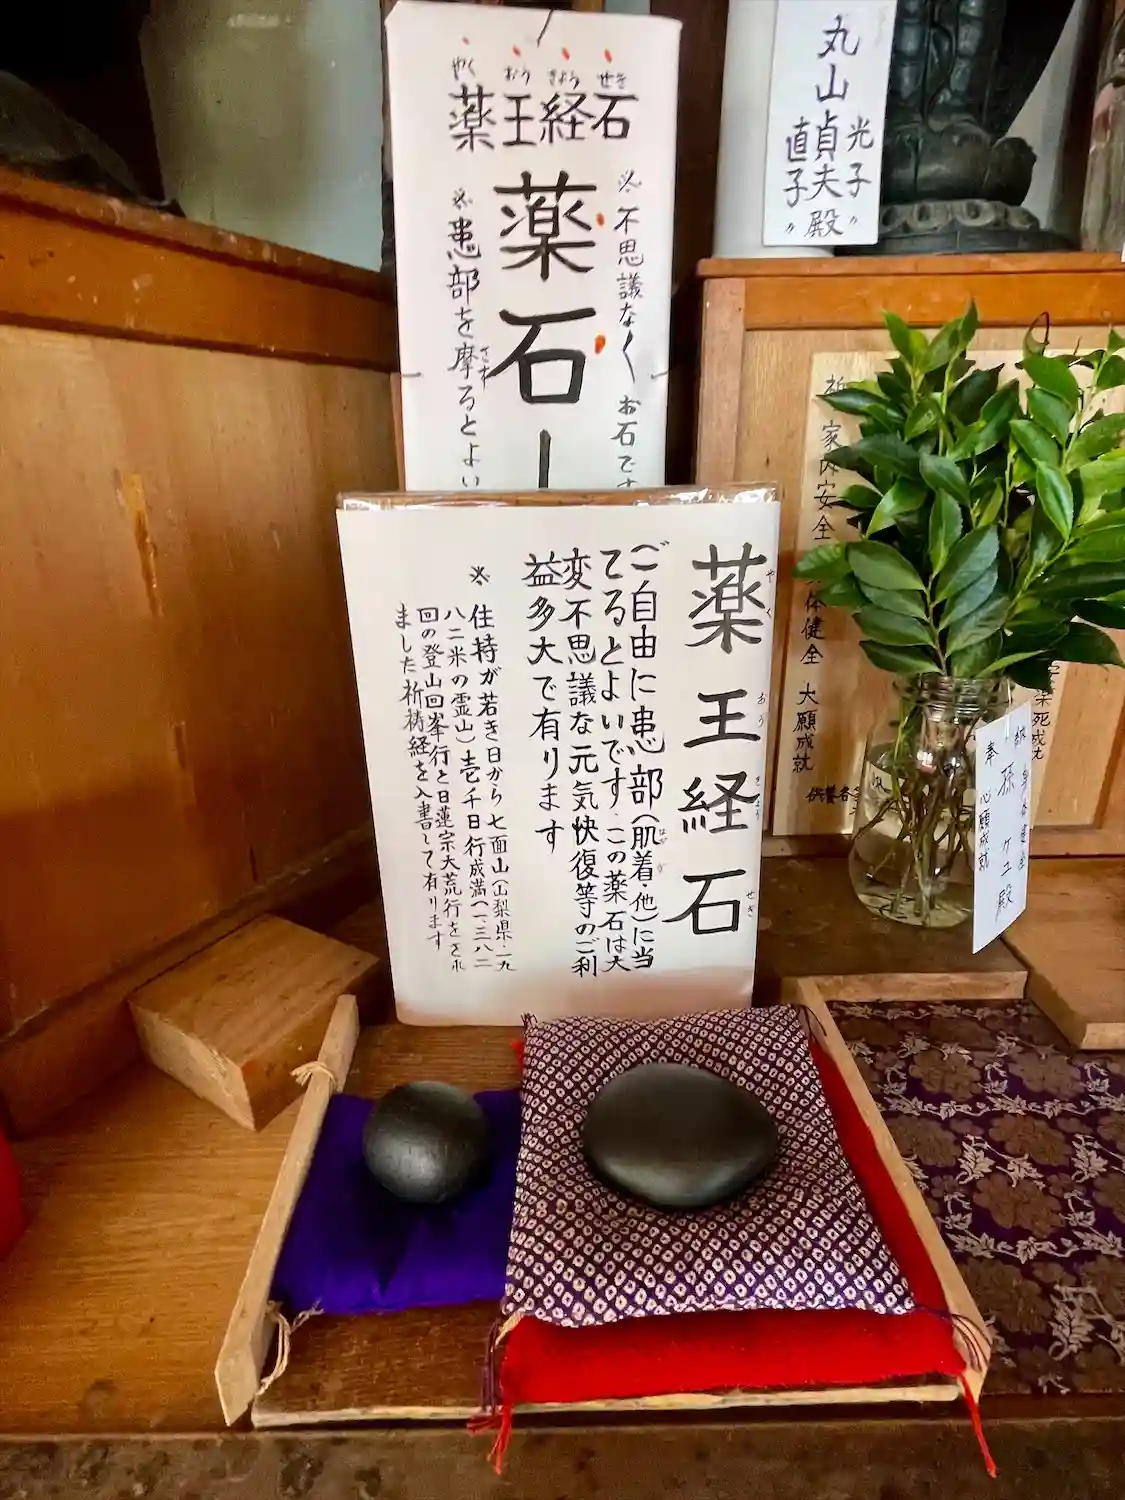 やく おう きょう せき
薬王経石
※不思議なくお石です
薬石
※患部を摩るとよい
さす
丸山貞夫殿
光子〃
直子〃
薬王経石
やく おう きょう せき
ご自由に患部(肌着・他)に当
はだ ぎ
てるとよいです。この薬石は大
変不思議な元気快復等のご利
益多大で有ります
※住持が若き日から七面山(山梨県・一九
八二米の霊山)壱千日行成満(一、三八二
回の登山回峯行と日蓮宗大荒行をされ
ました祈祷経を入書して有ります
家内安全
体健全 大願成就
供養
奉
孫 ケユ殿
心願成就